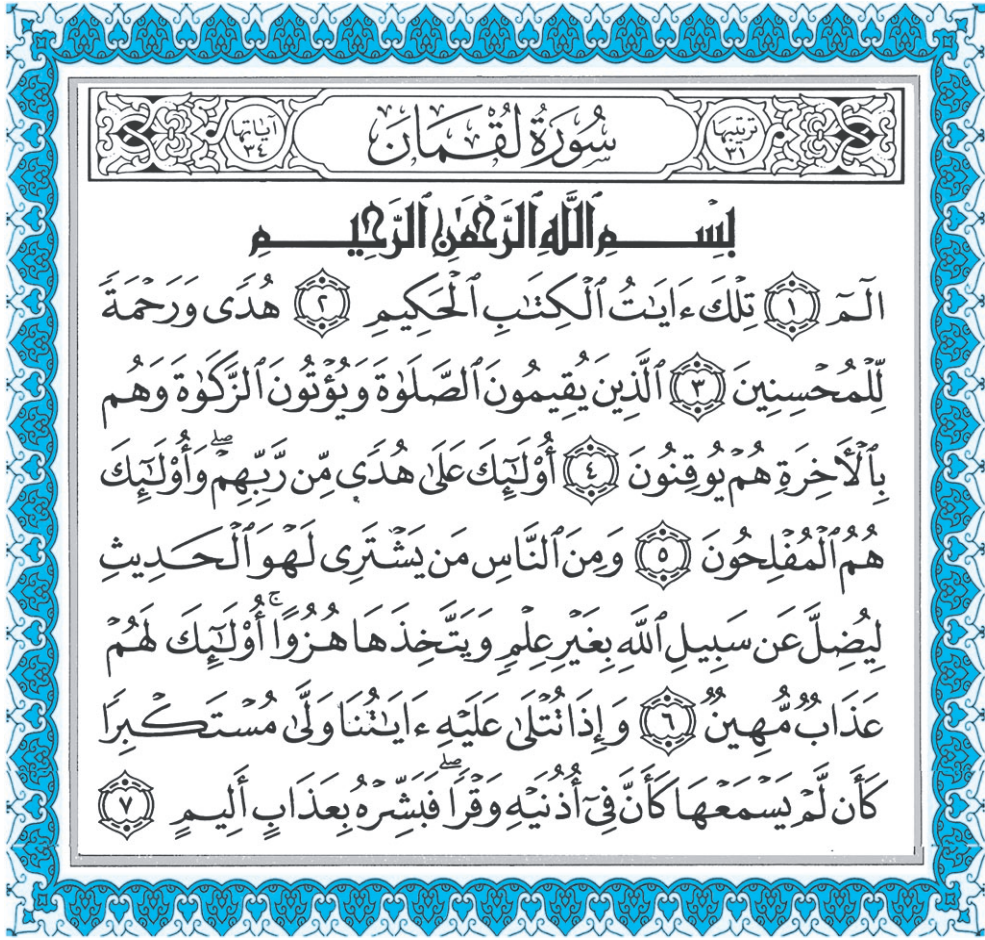 ترتيبها ٣١ سُورَةُ لُقْمَان آياتها ٣٤
بِسْمِ ٱللَّهِ ٱلرَّحْمَٰنِ ٱلرَّحِيمِ
الٓمٓ ١ تِلْكَ ءَايَٰتُ ٱلْكِتَٰبِ ٱلْحَكِيمِ ٢ هُدًى وَرَحْمَةً
لِّلْمُحْسِنِينَ ٣ ٱلَّذِينَ يُقِيمُونَ ٱلصَّلَوٰةَ وَيُؤْتُونَ ٱلزَّكَوٰةَ وَهُم
بِٱلْأَخِرَةِ هُمْ يُوقِنُونَ ٤ أُو۟لَٰٓئِكَ عَلَىٰ هُدًى مِّن رَّبِّهِمْ ۖ وَأُو۟لَٰٓئِكَ
هُمُ ٱلْمُفْلِحُونَ ٥ وَمِنَ ٱلنَّاسِ مَن يَشْتَرِى لَهْوَ ٱلْحَدِيثِ
لِيُضِلَّ عَن سَبِيلِ ٱللَّهِ بِغَيْرِ عِلْمٍ وَيَتَّخِذَهَا هُزُوًا ۚ أُو۟لَٰٓئِكَ لَهُمْ
عَذَابٌ مُّهِينٌ ٦ وَإِذَا تُتْلَىٰ عَلَيْهِ ءَايَٰتُنَا وَلَّىٰ مُسْتَكْبِرًا
كَأَن لَّمْ يَسْمَعْهَا كَأَنَّ فِىٓ أُذُنَيْهِ وَقْرًا ۖ فَبَشِّرْهُ بِعَذَابٍ أَلِيمٍ ٧